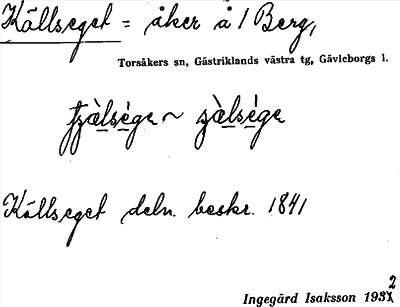 Källseget = åker å 1 Berg,
Torsåkers sn, Gästriklands västra tg, Gävleborgs l.
ṡälsège ~
Källseget deln. beskr. 1841
Ingegärd Isaksson 1932